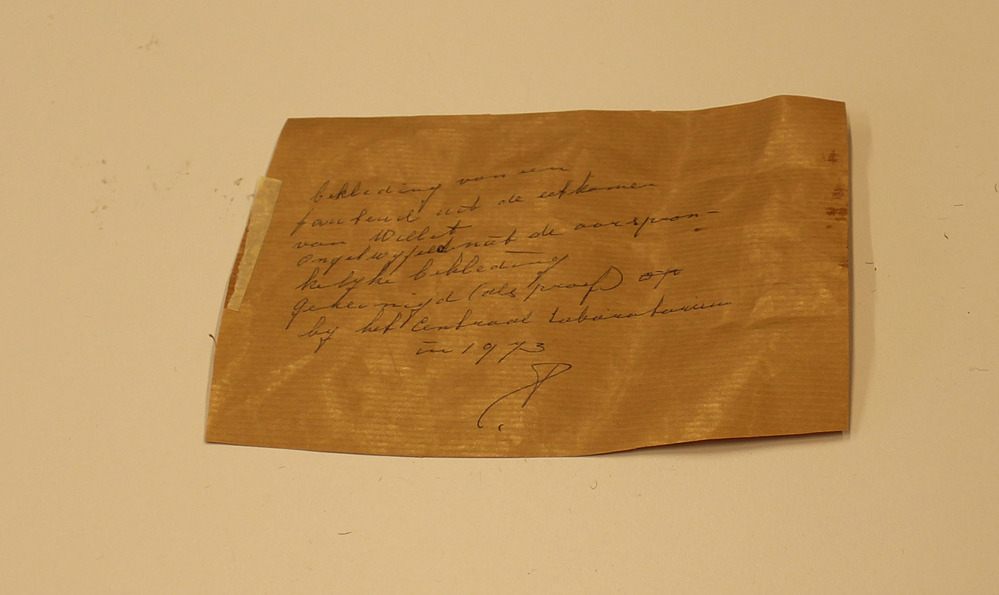 bekleding van een
fauteuil uit de eetkamer
van Willet
ongetwyfeld nit de oorspron-
kelyke bekleding
gereinigd (als proef) op
by het Centraal Laboratorium
in 1973